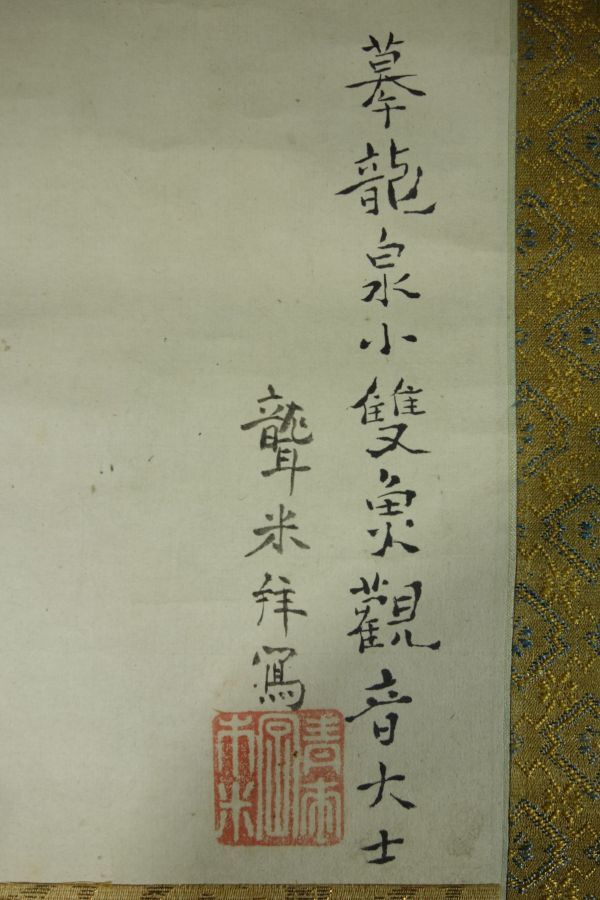 摹龍泉小雙魚觀音大士
聾米拜寫